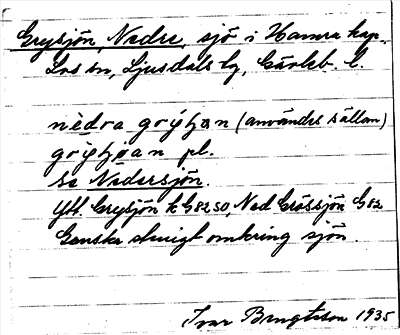 Grysjön, Nedre, sjö i Hamra kap.
Los sn, Ljusdals tg, Gävleb. l.
nèdra grýʃɳ (användes sällan)
pl.
se Nedersjön.
Ytt. Grysjön G82 SO, Ned Grössjön G82
Ganska stenigt omkring sjön.
Ivar Bengtsson 1935